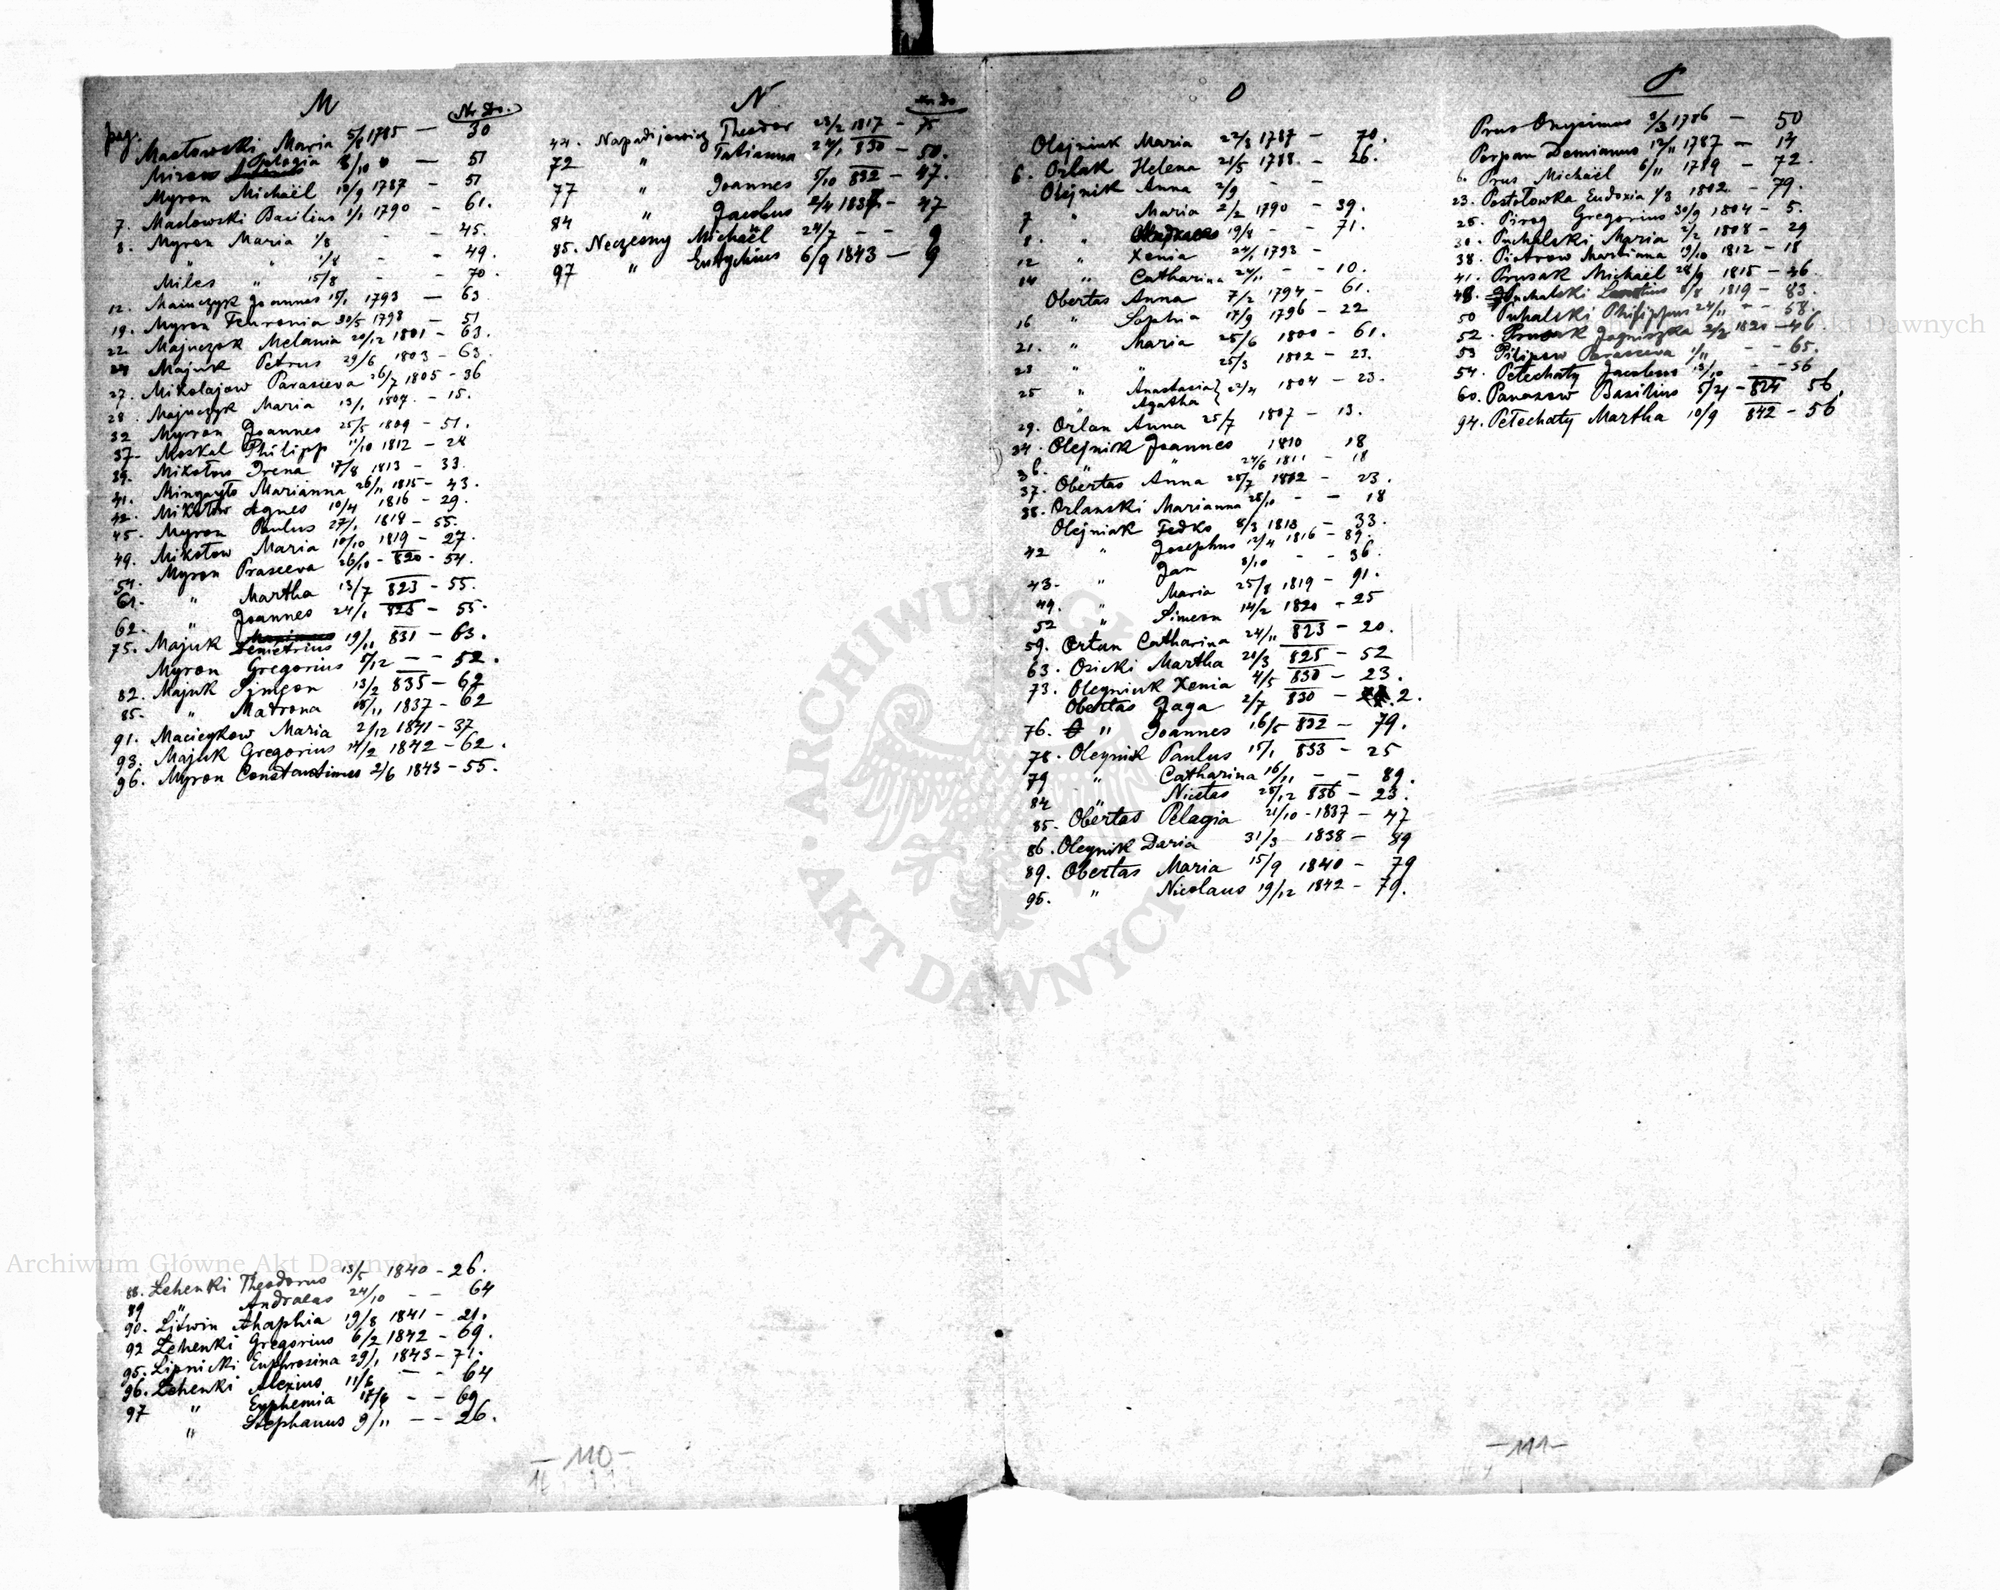 M
Nr Do.
pag.
Masłowski Maria 5/8 1785 — 30
Pelagia 8/10 — 51
Myron Michaël 10/9 1787 — 51
7. Maslowski Basilius 1/1 1790 — 61.
8. Myron Maria 1/8 - - 45.
" " 1/8 - - 49.
Miles " 15/8 - - 70.
12. Mainczyk Joannes 15/1 1793 — 63
19. Myron Fevronia 30/5 1798 — 51
22 Majnczak Melania 20/12 1801 — 63.
24 Majuk Petrus 29/6 1803 — 63.
27. Mikolajow Parasceva 26/7 1805 - 36
28. Majnczyk Maria 13/1 1807. — 15.
32 Myron Joannes 25/5 1809 — 51.
37. Moskal Philipp 11/10 1812 — 28
39. Mikołow Irena 17/8 1813 — 33.
41. Marianna 26/11 1815 — 43.
42. Mikołow Agnes 10/4 1816 — 29.
45. Myron Paulus 27/1 1818 — 55.
49. Mikołow Maria 10/10 1819 — 27.
54. Myron Prasceva 26/10 - 820 - 54.
61. " Martha 13/7 823 — 55.
62. " Joannes 24/1 825 — 55.
75. Majuk Demetrius 19/11 831 — 63.
Myron Gregorius 5/12 — — 52.
82. Majuk Symeon 13/2 835 — 62
85. " Matrona 15/11 1837 — 62
91. Macieykow Maria 2/12 1841 — 37
93. Majuk Gregorius 14/2 1842 — 62.
96. Myron Constantinus 2/6 1843 — 55.
88. Lehenki Theodorus 13/5 1840 - 26.
89 " Andraeas 24/10 - - 64
90. Litwin Ahaphia 19/8 1841 - 21.
92 Lehenki Gregorius 6/2 1842 - 69.
95. Lipnicki Euphrosina 29/1 1843 - 71.
96. Lehenki Alexius 11/6 — - 64
97 " Euphemia 17/8 - - 69
" Stephanus 9/11 — - 26.
N
Nr Do
44. Napadijewicz Theodor 23/2 1817 — 75
72 " Tatianna 24/1 830 — 50.
77 " Joannes 5/10 832 — 47.
84 " Jacobus 2/4 1837 — 47
85. Neczesny Michaël 24/7 — — 9
97 " Eutychius 6/9 1843 — 9
— 110 —
O
Olejniuk Maria 22/3 1787 — 70.
6. Orlak Helena 21/5 1788. — 26.
Olejnik Anna 2/9 - -
7 " Maria 2/2 1790 — 39.
8. " 19/8 - - 71.
12 " Xenia 24/1 1793 —
14 " Catharina 24/11 - - 10.
Obertas Anna 7/2 1794 — 61.
16 " Sophia 17/9 1796 — 22
21. " Maria 25/6 1800 — 61.
23 " 25/3 1802 — 23.
25 " Anastasia } 22/4 1804 — 23.
" Agatha
29. Orlan Anna 25/7 1807 — 13.
34. Olejnick Joannes 1810 18
36. " " 24/6 1811 — 18
37. Obertas Anna 28/7 1812 — 23.
38. Orlanski Marianna 28/10 - — 18
Olejniak Fedko 8/3 1813 — 33.
42 " Josephus 12/4 1816 — 89.
" Jan 8/10 - - 36.
43. " Maria 25/8 1819 — 91.
49. " Simeon 14/2 1820 — 25
52
59. Ortan Catharina 24/11 823 — 20.
63. Osicki Martha 20/3 825 — 52
73. Oleyniuk Xenia 4/5 830 — 23.
Obertas Jaga 2/7 830 — 2.
76. " Joannes 16/5 832 — 79.
78. Oleynik Paulus 15/1 833 — 25
79 " Catharina 16/11 — — 89.
84 " Nicetas 25/12 836 — 23.
85. Obertas Pelagia 21/10 - 1837 — 47
86. Oleynik Daria 31/3 1838 — 89
89. Obertas Maria 15/9 1840 — 79
95. " Nicolaus 19/12 1842 — 79.
P
Prus Onysimus 3/3 1786 — 50
Porpan Demianus 12/11 1787 — 14
6. Prus Michaël 6/11 1789 — 72.
23. Postolowka Eudoxia 1/3 1802 — 79.
25. Pirog Gregorius 30/9 1804 — 5.
30. Puchalski Maria 2/2 1808 — 29
38. Piotrow Marianna 19/10 1812 — 18
41. Prusak Michaël 28/9 1815 — 46
48. Puchalski 8/8 1819 — 83.
50 Puhalski Philippus 24/11 — — 58.
52. Prusak Jagniszka 2/2 1820 — 46
53 Pilipow Parasceva 1/11 - - 65.
54. Petechaty Jacobus 13/10 - - 56
60. Panasow Basilius 5/21 — 824 56.
94. Petechaty Martha 10/9 842 — 56
— 111 —
ARCHIWUM GŁÓWNE AKT DAWNYCH
Archiwum Główne Akt Dawnych
Akt Dawnych